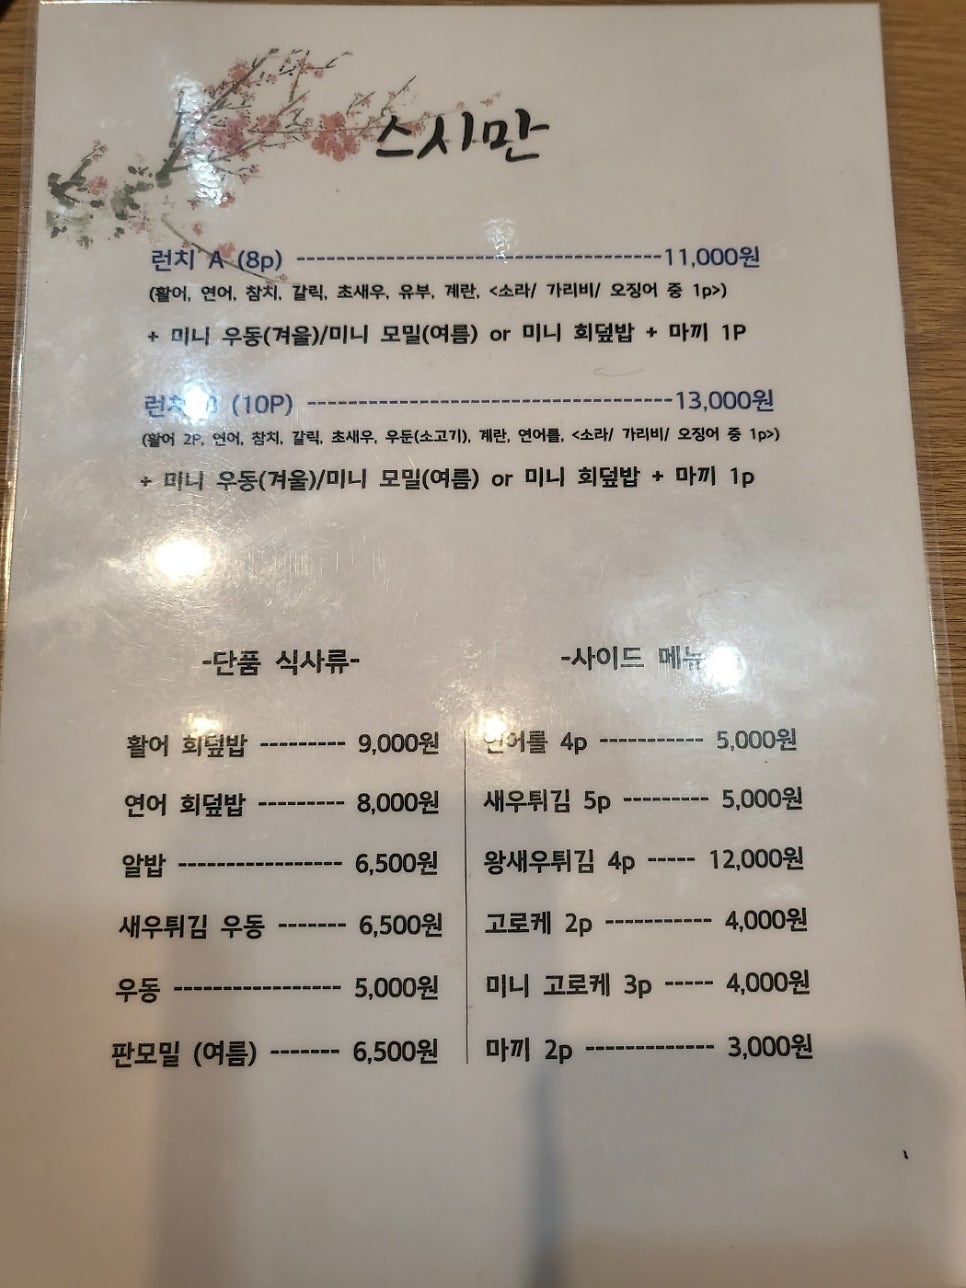 스시만
런치 A (8p) ------------------------------------11,000원
(활어, 연어, 참치, 갈릭, 초새우, 유부, 계란, <소라/ 가리비/ 오징어 중 1p>)
+ 미니 우동(겨울)/미니 모밀(여름) or 미니 회덮밥 + 마끼 1P
런치 B (10P) ------------------------------------13,000원
(활어 2P, 연어, 참치, 갈릭, 초새우, 우둔(소고기), 계란, 연어롤, <소라/ 가리비/ 오징어 중 1p>)
+ 미니 우동(겨울)/미니 모밀(여름) or 미니 회덮밥 + 마끼 1p
-단품 식사류-
활어 회덮밥 --------- 9,000원
연어 회덮밥 --------- 8,000원
알밥 ----------------- 6,500원
새우튀김 우동 ------- 6,500원
우동 ----------------- 5,000원
판모밀 (여름) ------- 6,500원
-사이드 메뉴
연어롤 4p ----------- 5,000원
새우튀김 5p --------- 5,000원
왕새우튀김 4p ----- 12,000원
고로케 2p ----------- 4,000원
미니 고로케 3p ----- 4,000원
마끼 2p ------------- 3,000원